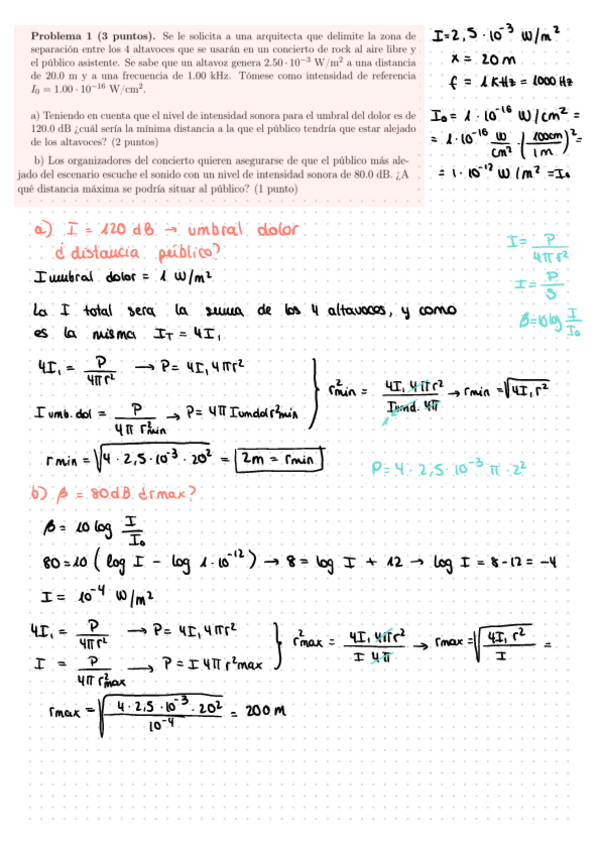 Problema 1 (3 puntos). Se le solicita a una arquitecta que delimite la zona de
separación entre los 4 altavoces que se usarán en un concierto de rock al aire libre y
el público asistente. Se sabe que un altavoz genera 2.50 · 10⁻³ W/m² a una distancia
de 20.0 m y a una frecuencia de 1.00 kHz. Tómese como intensidad de referencia
I₀ = 1.00 · 10⁻¹⁶ W/cm².
a) Teniendo en cuenta que el nivel de intensidad sonora para el umbral del dolor es de
120.0 dB ¿cuál sería la mínima distancia a la que el público tendría que estar alejado
de los altavoces? (2 puntos)
b) Los organizadores del concierto quieren asegurarse de que el público más ale-
jado del escenario escuche el sonido con un nivel de intensidad sonora de 80.0 dB. ¿A
qué distancia máxima se podría situar al público? (1 punto)
I = 2,5 · 10⁻³ W/m²
x = 20 m
f = 1 KHz = 1000 Hz
I₀ = 1 · 10⁻¹⁶ W/cm² =
= 1 · 10⁻¹⁶ W/cm² · (100cm/1m)² =
= 1 · 10⁻¹² W/m² = I₀
a) I = 120 dB → umbral dolor
¿distancia público?
I umbral dolor = 1 W/m²
La I total sera la suma de los 4 altavoces, y como
es la misma I_T = 4I₁
I = P/4πr²
I = P/S
β = 10 log I/I₀
4I₁ = P/4πr² → P = 4I₁4πr²
I umb. dol = P/4πr²min → P = 4π Iumdol r²min
r²min = 4I₁4πr²/Iumd. 4π → rmin = √4I₁r²
1
rmin = √4 · 2,5 · 10⁻³ · 20² = 2m = rmin
P = 4 · 2,5 · 10⁻³ π · 2²
b) β = 80dB ¿rmax?
β = 10 log I/I₀
80 = 10 (log I - log 1·10⁻¹²) → 8 = log I + 12 → log I = 8-12 = -4
I = 10⁻⁴ W/m²
4I₁ = P/4πr² → P = 4I₁4πr²
I = P/4πr²max → P = I4πr²max
r²max = 4I₁4πr²/I4π → rmax = √4I₁r²/I =
rmax = √4 · 2,5 · 10⁻³ · 20²/10⁻⁴ = 200 m